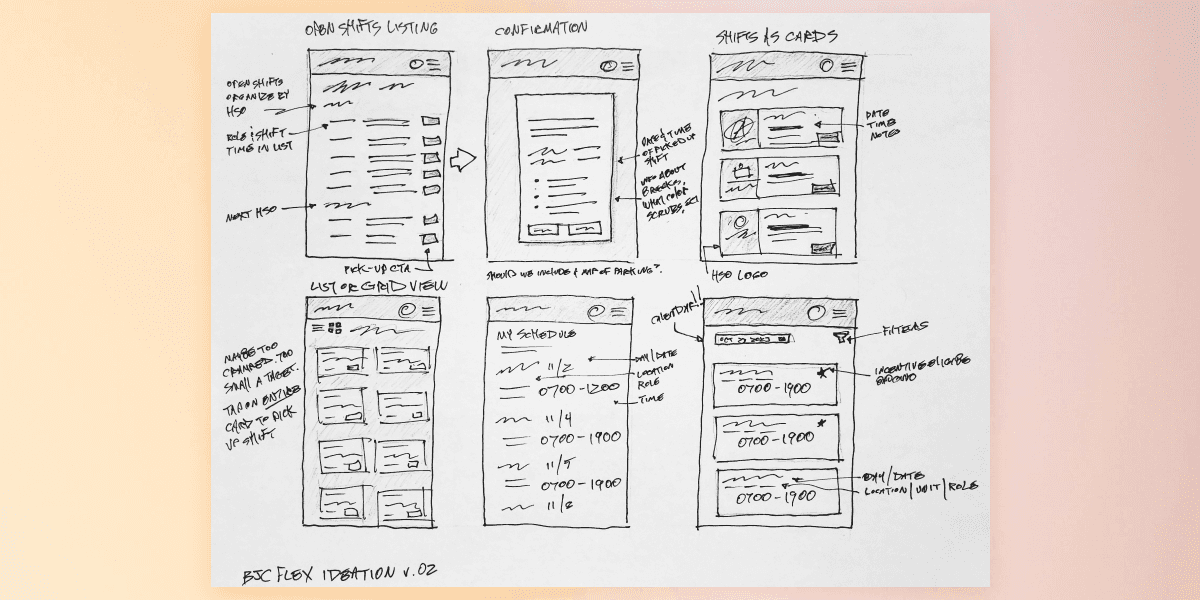 OPEN SHIFTS LISTING
OPEN SHIFTS
ORGANIZE BY
HSO
ROLE & SHIFT
TIME IN LIST
NEXT HSO
PICK-UP CTA
CONFIRMATION
DATE & TIME
OF PICKED UP
SHIFT
INFO ABOUT
BREAKS,
WHAT COLOR
SCRUBS, ECT
SHOULD WE INCLUDE A MAP OF PARKING?
SHIFTS AS CARDS
DATE
TIME
NOTES
HSO LOGO
LIST OR GRID VIEW
MAYBE TOO
CRAMPED. TOO
SMALL A TARGET.
TAP ON ENTIRE
CARD TO PICK
UP SHIFT
MY SCHEDULE
11/2
0700-1200
11/4
0700-1900
11/5
0700-1900
11/8
DAY/DATE
LOCATION
ROLE
TIME
CALENDAR!!
OCT 27 2023
FILTERS
INCENTIVE ELIGIBLE
0700-1900
0700-1900
0700-1900
DAY/DATE
LOCATION/UNIT/ROLE
BJC FLEX IDEATION v.02